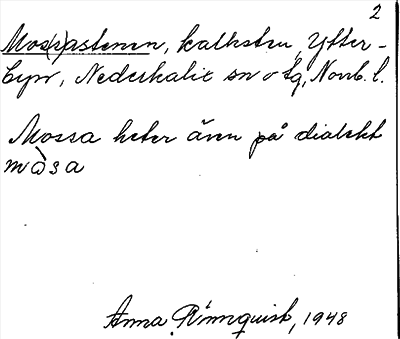 2
Mos(s)astenen, kalksten, Ytter-
byn, Nederkalix sn o tg, Norrb. l.
Mossa heter även på dialekt
måsa
Anna Rönnquist, 1948